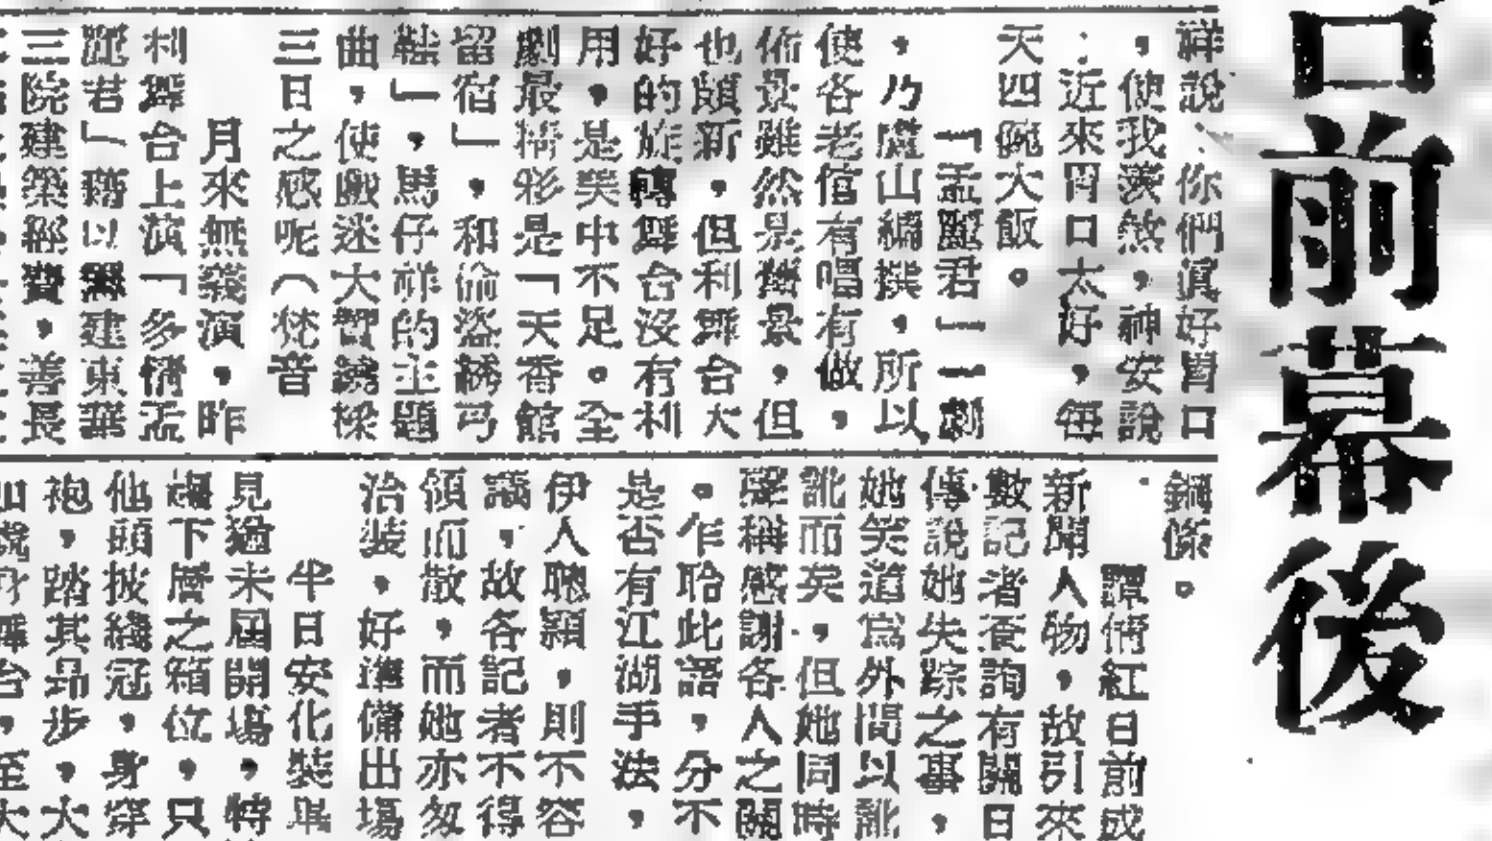 台前幕後
祥說：你們眞好胃口
，使我羨煞，神安說
：近來胃口太好，每
天四碗大飯。
「孟麗君」一劇
，乃盧山編撰，所以
使各老倌有唱有做，
佈景雖然是舊景，但
也頗新，但利舞台大
好的旋轉舞台沒有利
用，是美中不足。全
劇最精彩是「天香館
留宿」，和偷盜綉弓
鞋」，馬仔祥的主題
曲，使戲迷大贊繞樑
三日之感呢（梵音
月來無義演，昨
利舞台上演「多情孟
麗君」籌以 建東華
三院建築經費，善長
鋼條。
譚倩紅日前成
新聞人物，故引來
數記者查詢有關日
傳說她失踪之事，
她笑道爲外間以訛
訛而矣，但她同時
聲稱感謝各人之關
。乍聆此語，分不
是否有江湖手法，
伊人聰穎，則不容
議，故各記者不得
領而散，而她亦匆
治裝，好準備出場
半日安化裝畢
見過未屆開場，特
下層之箱位，只
他頭披綫冠，身穿
袍，踏其昂步，大
台，至大